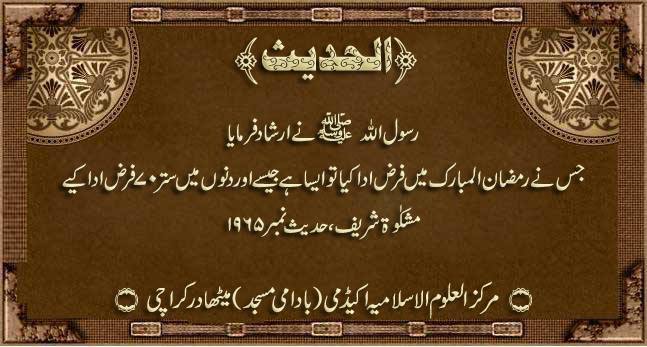 ﴿الحدیث﴾
رسول اللہ ﷺ نے ارشاد فرمایا
جس نے رمضان المبارک میں فرض ادا کیا تو ایسا ہے جیسے اور دنوں میں ستر ۷۰ فرض ادا کیے
مشکوٰۃ شریف، حدیث نمبر ۱۹۶۵
مرکز العلوم الاسلامیہ اکیڈمی (بادامی مسجد) میٹھادر کراچی